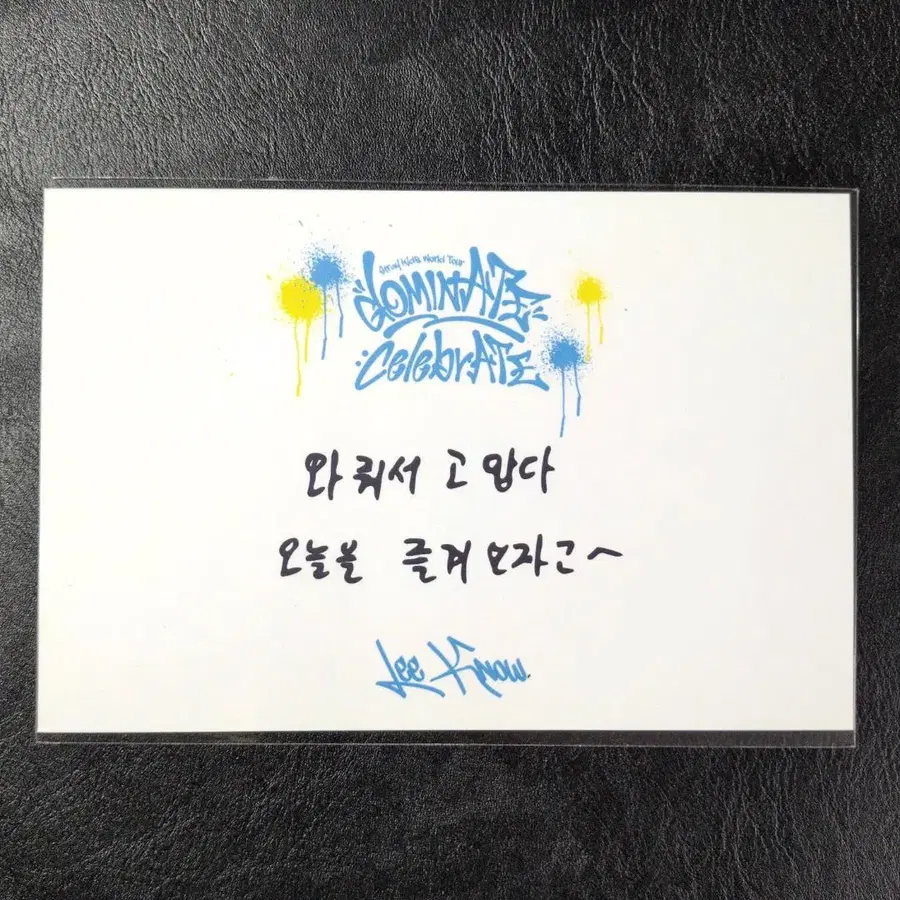 Stray Kids World Tour
dominATE
celebrATE
와 줘서 고맙다
오늘을 즐겨보자고~
Lee Know.